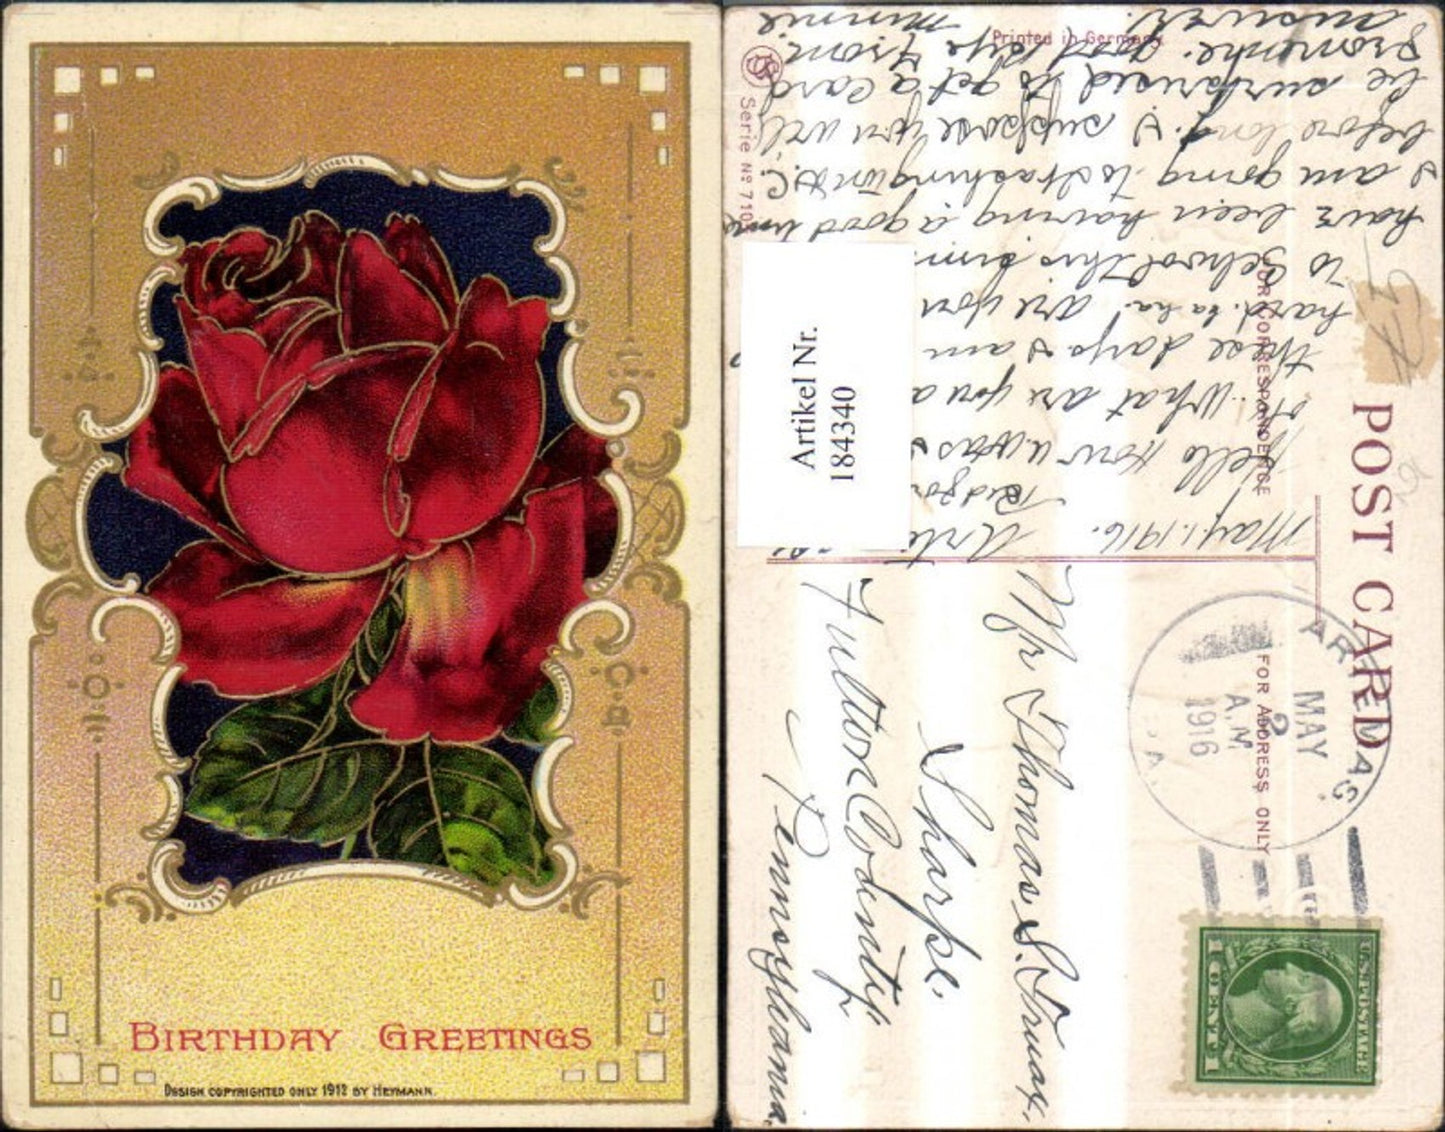 BIRTHDAY GREETINGS
DESIGN COPYRIGHTED ONLY 1912 BY HEYMANN.
Printed in Germany
Serie No 710
Artikel Nr.
184340
POST CARD
FOR CORRESPONDENCE
FOR ADDRESS ONLY
May. 1. 1916.
Hello How
What are you
these days I am
hard. ha ha. are you
to School this
have been having a good time
I am going to Washington D.C.
before long. I suppose you will
be surprised to get a card
from me. good bye From Minnie
answer.
MAY
2
A.M.
1916
PA.
Mr Thomas S. Truax,
Sharpe.
Fulton County
Pennsylvania,
U.S. POSTAGE
1 ONE 1